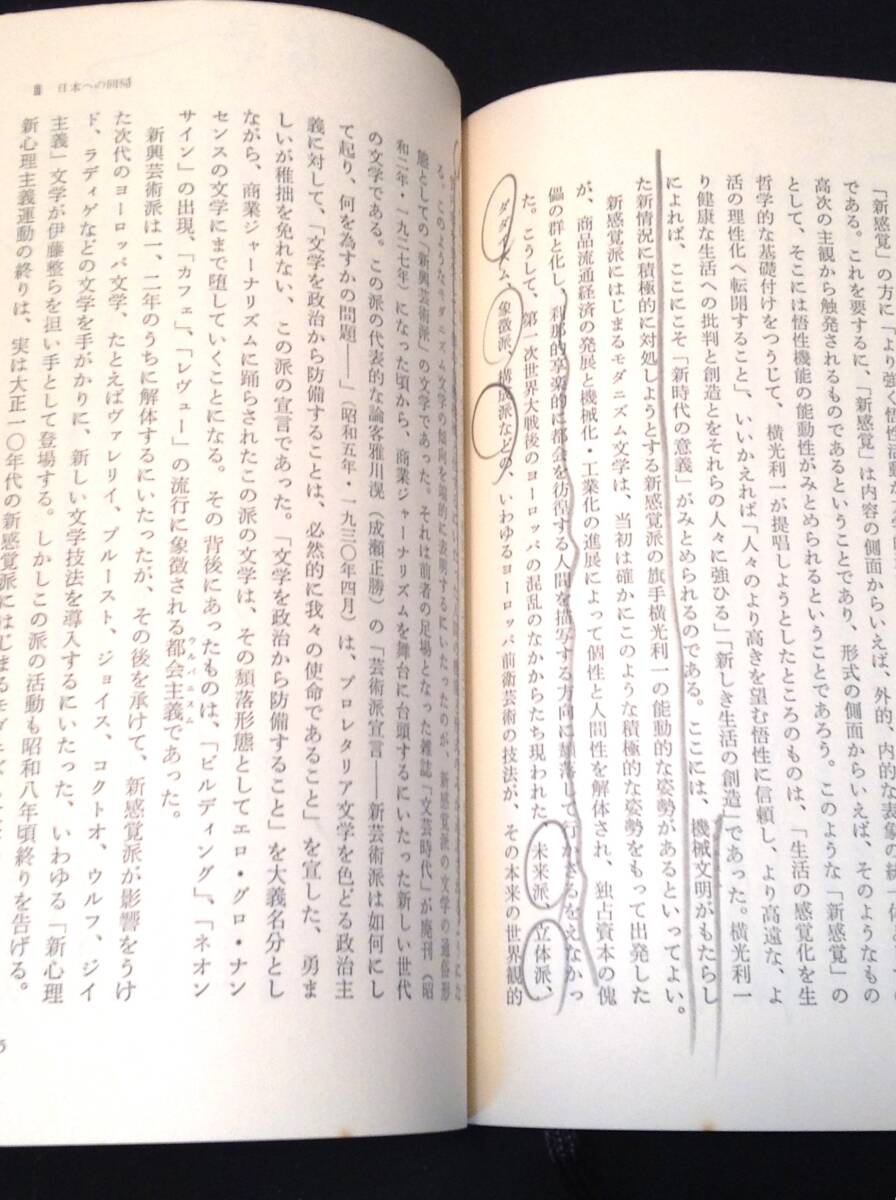 である。これを要するに、「新感覚」は内容の側面からいえば、そのようなもの
高次の主観から触発されるものであるということであり、形式の側面からいえば、このような「新感覚」の
として、そこには悟性機能の能動性がみとめられるということであろう。
哲学的な基礎付けをつうじて、横光利一が提唱しようとしたところのものは、「生活の感覚化を生
活の理性化へ転開すること」、いいかえれば「人々のより高きを望む悟性に信頼し、より高遠な、よ
り健康な生活への批判と創造とをそれらの人々に強ひる」「新しき生活の創造」であった。横光利一
によれば、ここにこそ「新時代の意義」がみとめられるのである。ここには、機械文明がもたらし
た新情況に積極的に対処しようとする新感覚派の旗手横光利一の能動的な姿勢があるといってよい。
新感覚派にはじまるモダニズム文学は、当初は確かにこのような積極的な姿勢をもって出発した
が、商品流通経済の発展と機械化・工業化の進展によって個性と人間性を解体され、独占資本の傀
儡の群と化し、刹那的享楽的に都会を彷徨する人間を描写する方向に頽落して行かざるをえなかっ
た。こうして、第一次世界大戦後のヨーロッパの混乱のなかからたち現われた未来派、立体派、
ダダイズム、象徴派、構成派などの、いわゆるヨーロッパ前衛芸術の技法が、その本来の世界観的
Ⅲ 日本への回帰
る。このようなモダニズム文学の傾向を端的に表明するにいたったのが、新感覚派の文学の通俗形
態としての「新興芸術派」の文学であった。それは前者の足場となった雑誌「文芸時代」が廃刊(昭
和二年・一九二七年)になった頃から、商業ジャーナリズムを舞台に台頭するにいたった新しい世代
の文学である。この派の代表的な論客雅川滉(成瀬正勝)の「芸術派宣言――新芸術派は如何にし
て起り、何を為すかの問題――」(昭和五年・一九三〇年四月)は、プロレタリア文学を色どる政治主
義に対して、「文学を政治から防備することは、必然的に我々の使命であること」を宣した、勇ま
しいが稚拙を免れない、この派の宣言であった。「文学を政治から防備すること」を大義名分とし
ながら、商業ジャーナリズムに踊らされたこの派の文学は、その頽落形態としてエロ・グロ・ナン
センスの文学にまで堕していくことになる。その背後にあったものは、「ビルディング」、「ネオン
サイン」の出現、「カフェ」、「レヴュー」の流行に象徴される都会主義であった。
ウルバニスム
新興芸術派は一、二年のうちに解体するにいたったが、その後を承けて、新感覚派が影響をうけ
た次代のヨーロッパ文学、たとえばヴァレリイ、プルースト、ジョイス、コクトオ、ウルフ、ジイ
ド、ラディゲなどの文学を手がかりに、新しい文学技法を導入するにいたった、いわゆる「新心理
主義」文学が伊藤整らを担い手として登場する。しかしこの派の活動も昭和八年頃終りを告げる。
新心理主義運動の終りは、実は大正一〇年代の新感覚派にはじまるモダニズ